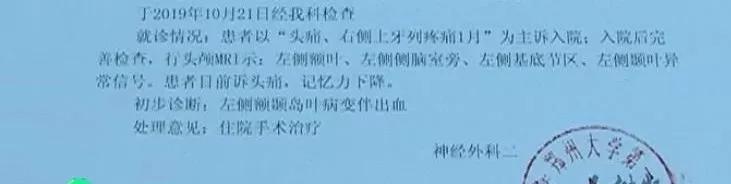 于2019年10月21日经我科检查
就诊情况：患者以“头痛、右侧上牙列疼痛1月”为主诉入院；入院后完
善检查，行头颅MRI示：左侧额叶、左侧侧脑室旁、左侧基底节区、左侧颞叶异
常信号。患者目前诉头痛，记忆力下降。
初步诊断：左侧额颞岛叶病变伴出血
处理意见：住院手术治疗
神经外科二
郑州大学第